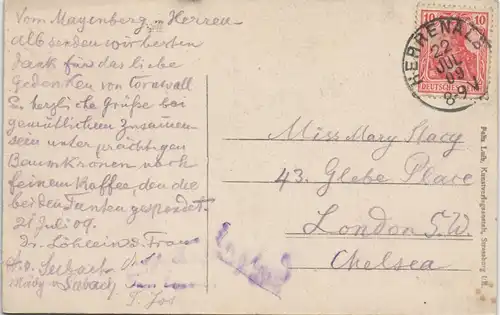 Vom Mayenberg in Herren-
alb senden wir besten
Dank für das liebe
Gedenken von
herzliche Grüße bei
gemütlichem Zusammen-
sein unter prächtigen
Baumkronen
feinem Kaffee, den die
beiden Tanten gespendet.
21 Juli 09.
Dr. Löhlein u. Frau
v. Seebach
v Seebach
HERRENALB
22
JUL
09
8-9 N
10 10
DEUTSCHES
Miss Mary Stacy
43. Glebe Place
London S.W.
Chelsea
Felix Luib, Kunstverlagsanstalt, Strassburg i/E.